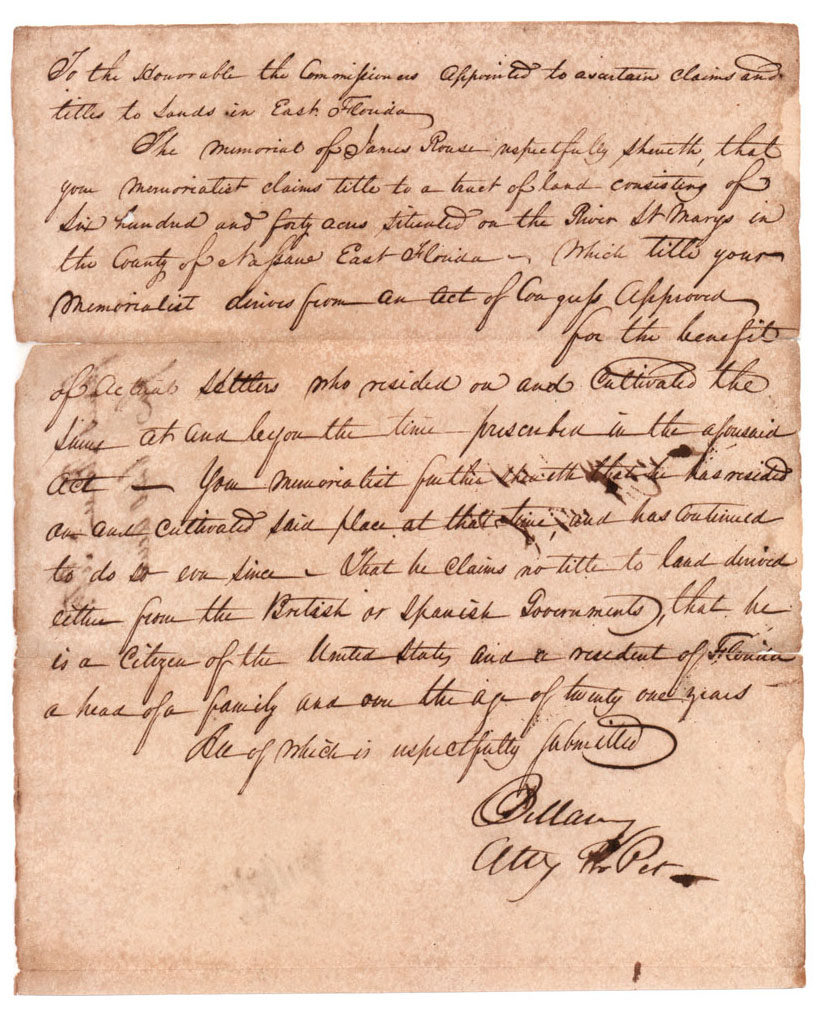 To the Honorable the Commissioners appointed to ascertain claims and
titles to Lands in East Florida
The memorial of James Rouse respectfully sheweth, that
your memorialist claims title to a tract of land consisting of
Six hundred and forty acres, situated on the River St Marys in
the County of Nassau East Florida – Which title your
Memorialist derives from an act of Congress Approved
for the benefit
of actual Settlers who resided on and Cultivated the
same at and beyon the time prescribed in the aforesaid
Act — Your memorialist further sheweth that he has resided
on and cultivated said place at that time, and has continued
to do so ever since – That he claims no title to land derived
either from the British or Spanish Governments, that he
is a Citizen of the United States and a resident of Florida
a head of a family and over the age of twenty one years
All of which is respectfully submitted
Bellamy
Atty Pro Pet